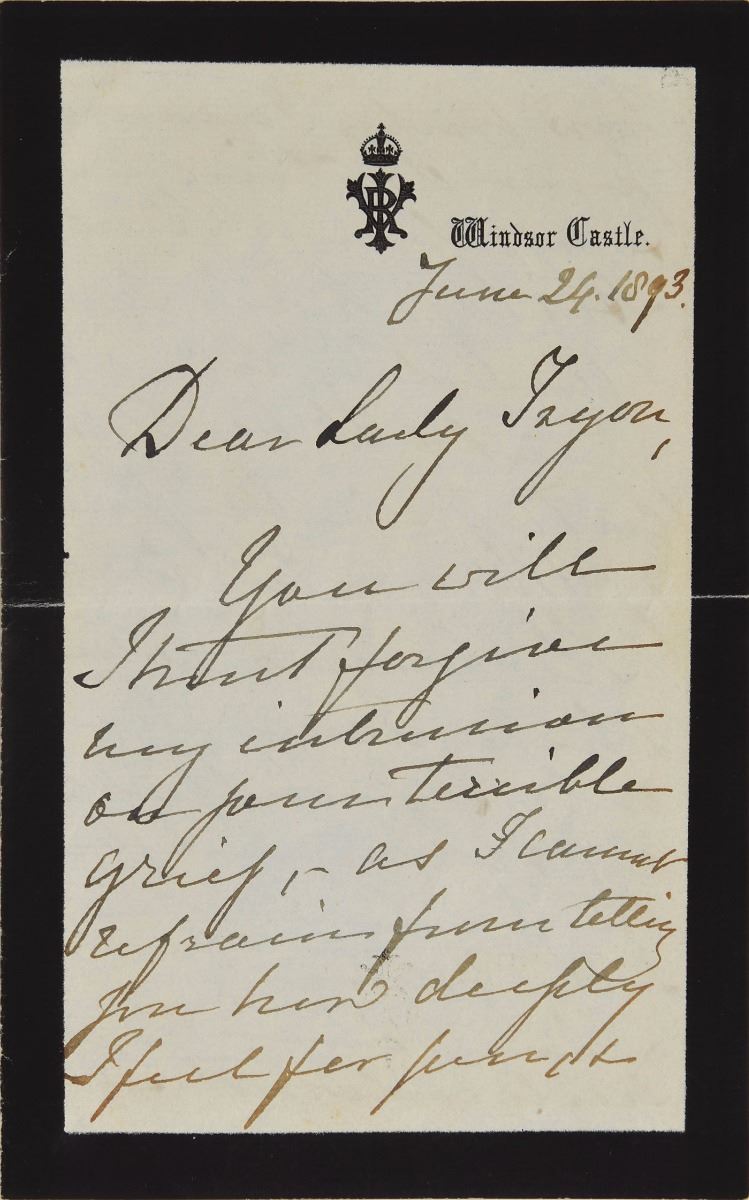 VRI
Windsor Castle.
June 24. 1893.
Dear Lady Tryon,
You will
I trust forgive
my intrusion
on your terrible
grief, – as I cannot
refrain from telling
you how deeply
I feel for you, &